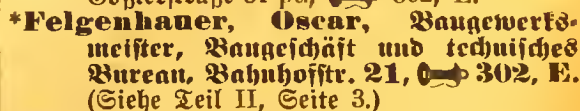 *Felgenhauer, Oscar, Baugewerks-
meister, Baugeschäft und technisches
Bureau, Bahnhofstr. 21, 302, E.
(Siehe Teil II, Seite 3.)